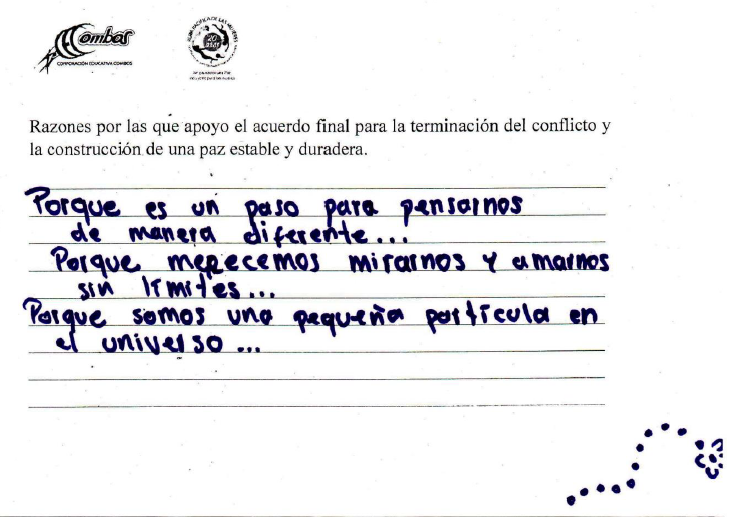 Combos
CORPORACIÓN EDUCATIVA COMBOS
RUTA PACÍFICA DE LAS MUJERES
20
años
Razones por las que apoyo el acuerdo final para la terminación del conflicto y
la construcción de una paz estable y duradera.
Porque es un paso para pensarnos
de manera diferente...
Porque merecemos mirarnos y amarnos
sin límites...
Porque somos una pequeña partícula en
el universo...